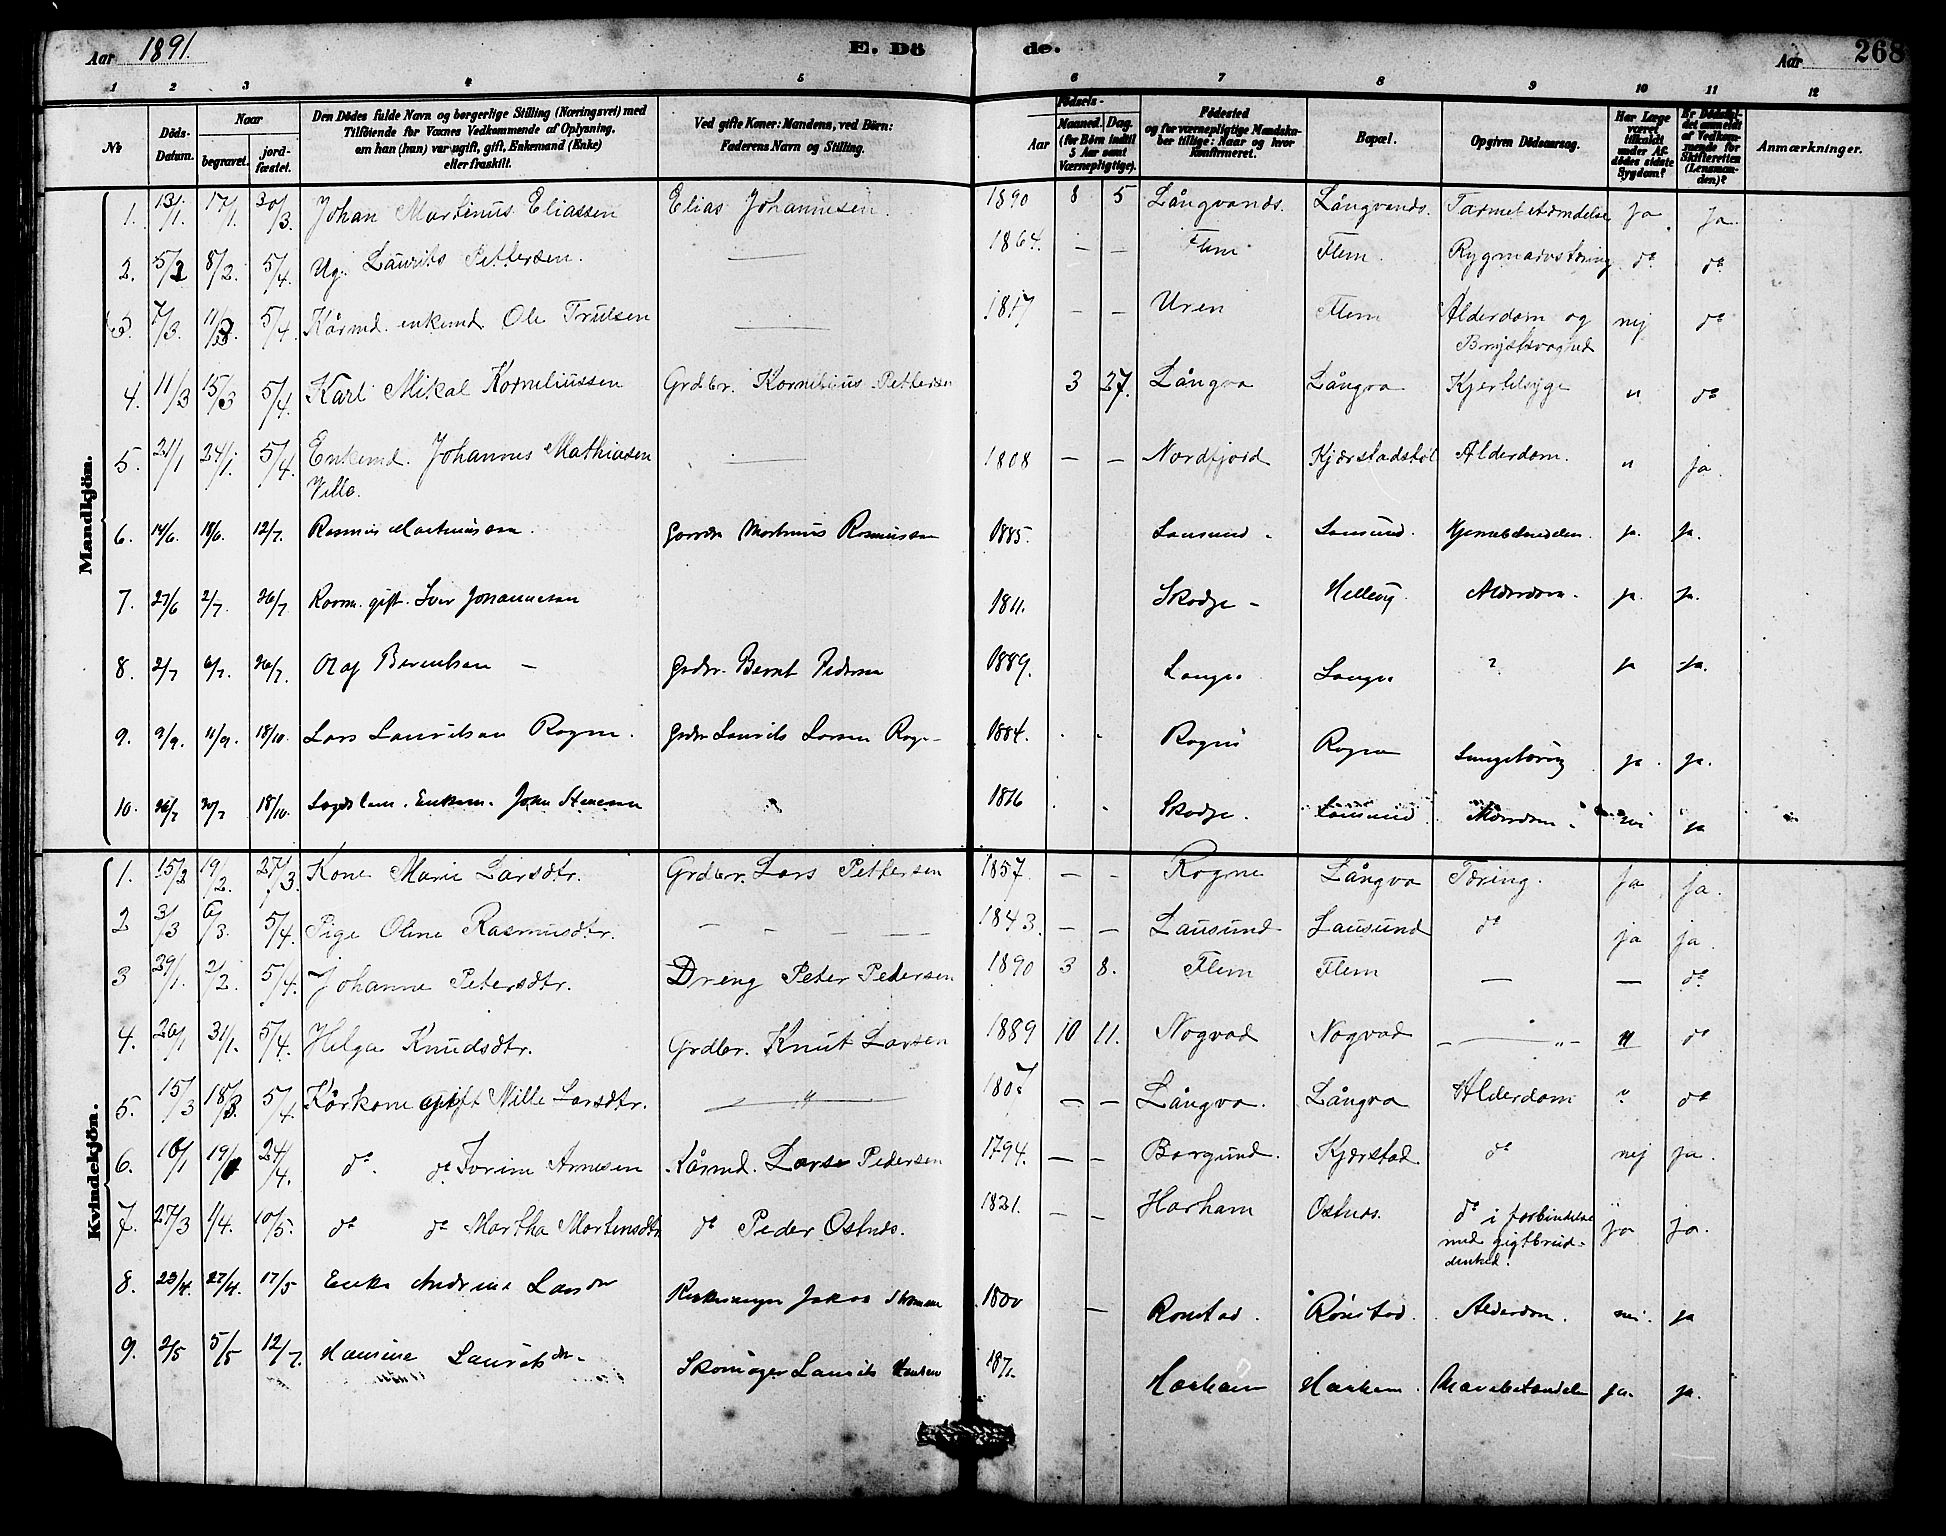 Aar 1891. E. Dö de. Aar 268
1 2 3 4 5 6 7 8 9 10 11 12
No
Döds-Datum.
Naar
begravet. jord-fæstet.
Den Dödes fulde Navn og borgerlige Stilling (Næringsvei) med
Tilföiende for Voxnes Vedkommende af Oplysning,
om han (hun) var ugift, gift, Enkemand (Enke)
eller fraskilt.
Ved gifte Koner: Mandens, ved Börn:
Faderens Navn og Stilling.
Födsels-
Aar Maaned. Dag.
(for Börn indtil
5 Aar samt
Værnepligtige).
Födested
og for værnepligtige Mandska-
ber tillige: Naar og hvor
Konfirmeret.
Bopæl.
Opgiven Dödsaarsag.
Har Læge
været
tilkaldt
under Af-
dödes sidste
Sygdom?
Er Dödsfal-
det anmeldt
af Vedkom-
mende for
Skifteretten
(Lensman-
den)?
Anmærkninger.
Mandkjön.
1. 13/1 17/1 30/3. Johan Martinus Eliassen Elias Johannesen. 1890 8 5 Långvands. Långvands. Tarmebetændelse Ja Ja
2. 5/2 8/2. 5/4. Ug. Laurits Pettersen. — 1864. — — Flem Flem. Rygmarvstæring do do
3. 7/3. 11/3. 5/4. Kårmd. enkemd Ole Trulsen — 1817 — — Uren Flem Alderdom og nej do
Brystsvaghed
4. 11/3 15/3 5/4. Karl Mikal Korneliussen Grdbr. Kornelius Pettersen 3 27. Långva Långva Kjertelsyge " do
5. 21/1 24/1. 5/4. Enkemd. Johannes Mathiasen — 1808 — — Nordfjord Kjærstadstøl Alderdom. " Ja.
6. 14/6. 18/6. 12/7. Rasmus Martinussen. Martinus Rasmussen 1885. Lausund. Lausund. ja. Ja.
7. 27/6 2/7. 26/7 gift. Iver Johannesen 1811. Skodje – Hellevig. Alderdom. ja. Ja.
8. 2/7 6/7. 26/7. Olaf Berentsen – Grdbr. Bernt Pedersen 1889. Longva Longva ? ja Ja.
9. 9/9. 11/9. 18/10. Lars Lauritsen Rogne. Grdbr Laurits Larsen Rogne 1884. Rogne Rogne Lungetæring ja. Ja.
10. 26/7 18/10. Enkem. John Steneson 1816 Skodje. Lausund Alderdom. nei ja
Kvindekjön.
1. 15/2 19/2. 27/3. Kone Marie Larsdtr. Grdbr. Lars Pettersen 1857. — — Rogne Långva Tæring. Ja Ja.
2 3/3 6/3. 5/4. Pige Oline Rasmusdtr. — — — — 1843. — — Lausund Lausund do ja ja.
3 29/1. 2/2. 5/4. Johanne Petersdtr. Dreng Peter Pedersen 1890 3 8. Flem Flem — — do
4. 26/1 31/1. 5/4. Helga Knudsdtr. Grdbr. Knut Larsen 1889 10 11. Nogvad Nogvad — " — " do
5. 15/3 18/3. 5/4 Kårkone gift Nille Larsdtr. — " — 1807 — — Långva. Långva Alderdom " do
6. 16/1 19/1 24/4. do. do. Jorine Arnesen Kårmd. Lars Pedersen 1794. — — Borgund. Kjærstad do nej Ja.
7. 27/3 1/4. 10/5. do do Martha Martinsdtr do Peder Ostnes. 1821. — — Harham Ostnes. do i forbindelse ja ja.
med gigtbrud-
denhed.
8. 23/4. 27/4. 17/5 Enke Andrine Larsdtr Jakob 1800 — Rønstad. Rønstad. Alderdom. nei. ja
9. 2/5 5/5 12/7. Hansine Lauritsdtr. Skomager Laurits Hansen 1871. Harham Harham. Mavebetændelse ja. ja.